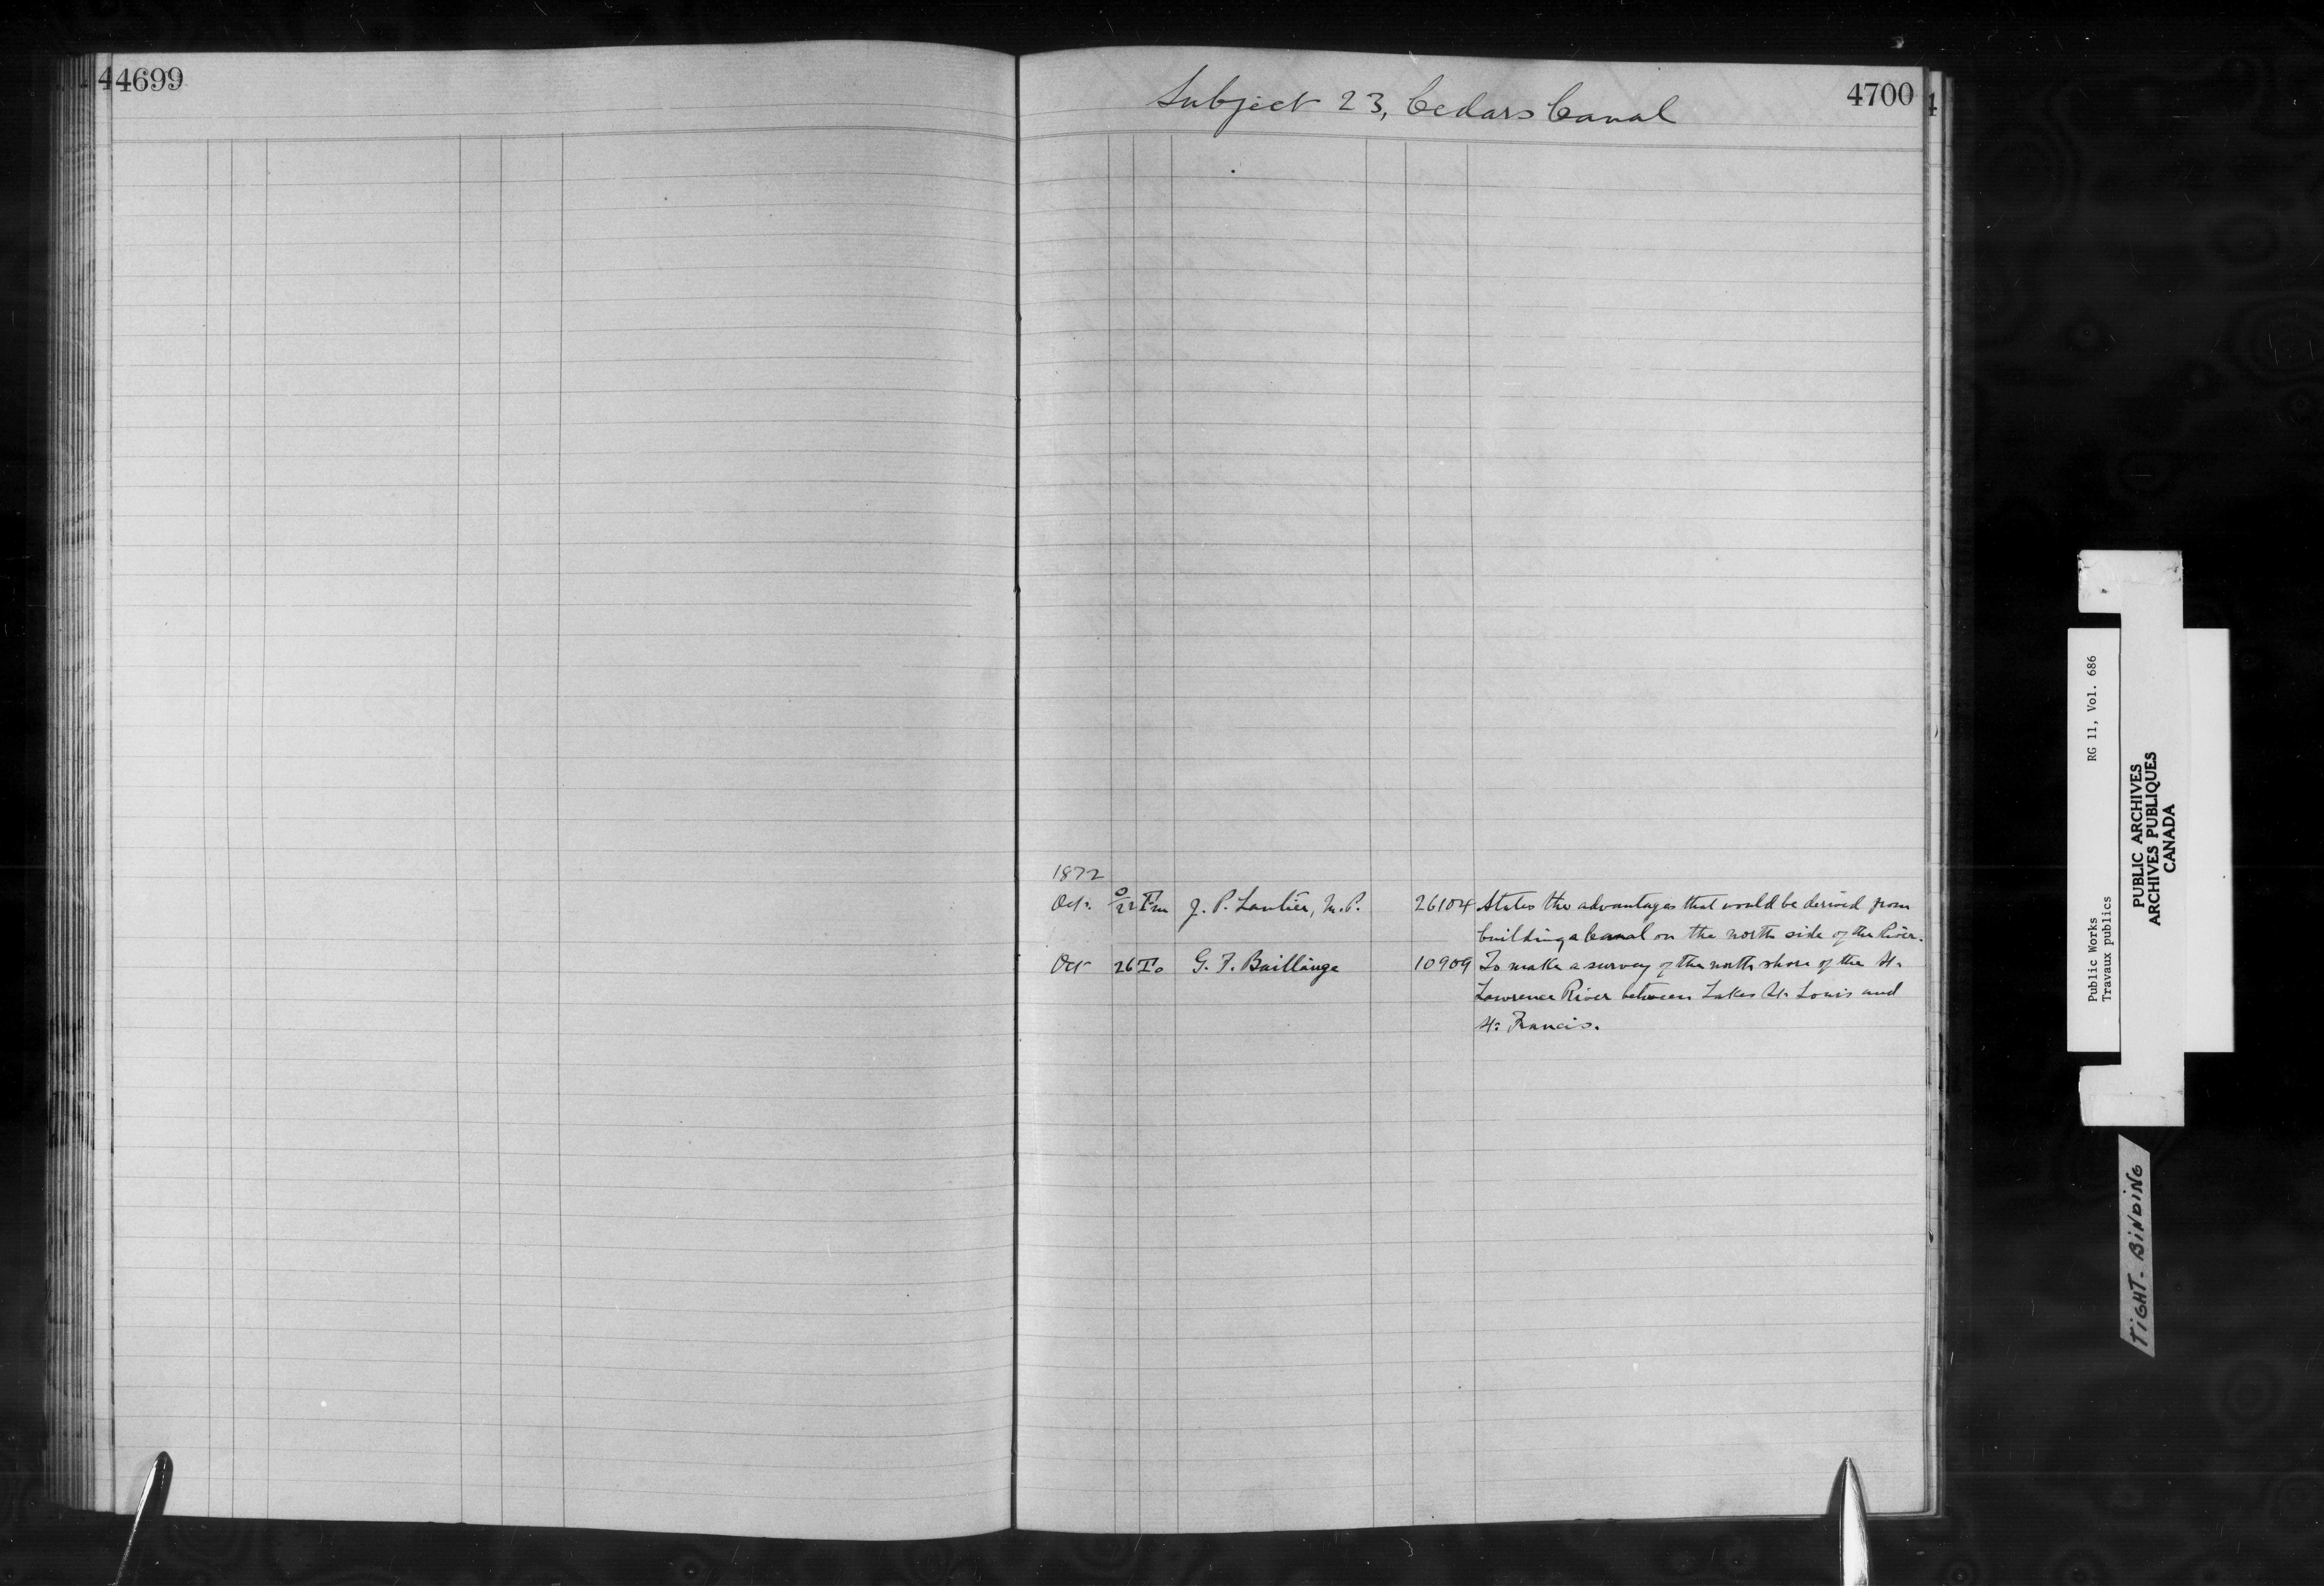 44699
4700
Subject 23, Cedars Canal
1872
Oct. 22 Fm J. P. Lantier, M.P. 26104 States the advantages that would be derived from
building a Canal on the north side of the River.
Oct 26 To G. F. Baillairge 10909 To make a survey of the north shore of the St.
Lawrence River between Lakes St. Louis and
St. Francis.
Public Works RG 11, Vol. 686
Travaux publics
PUBLIC ARCHIVES
ARCHIVES PUBLIQUES
CANADA
TIGHT-BINDING